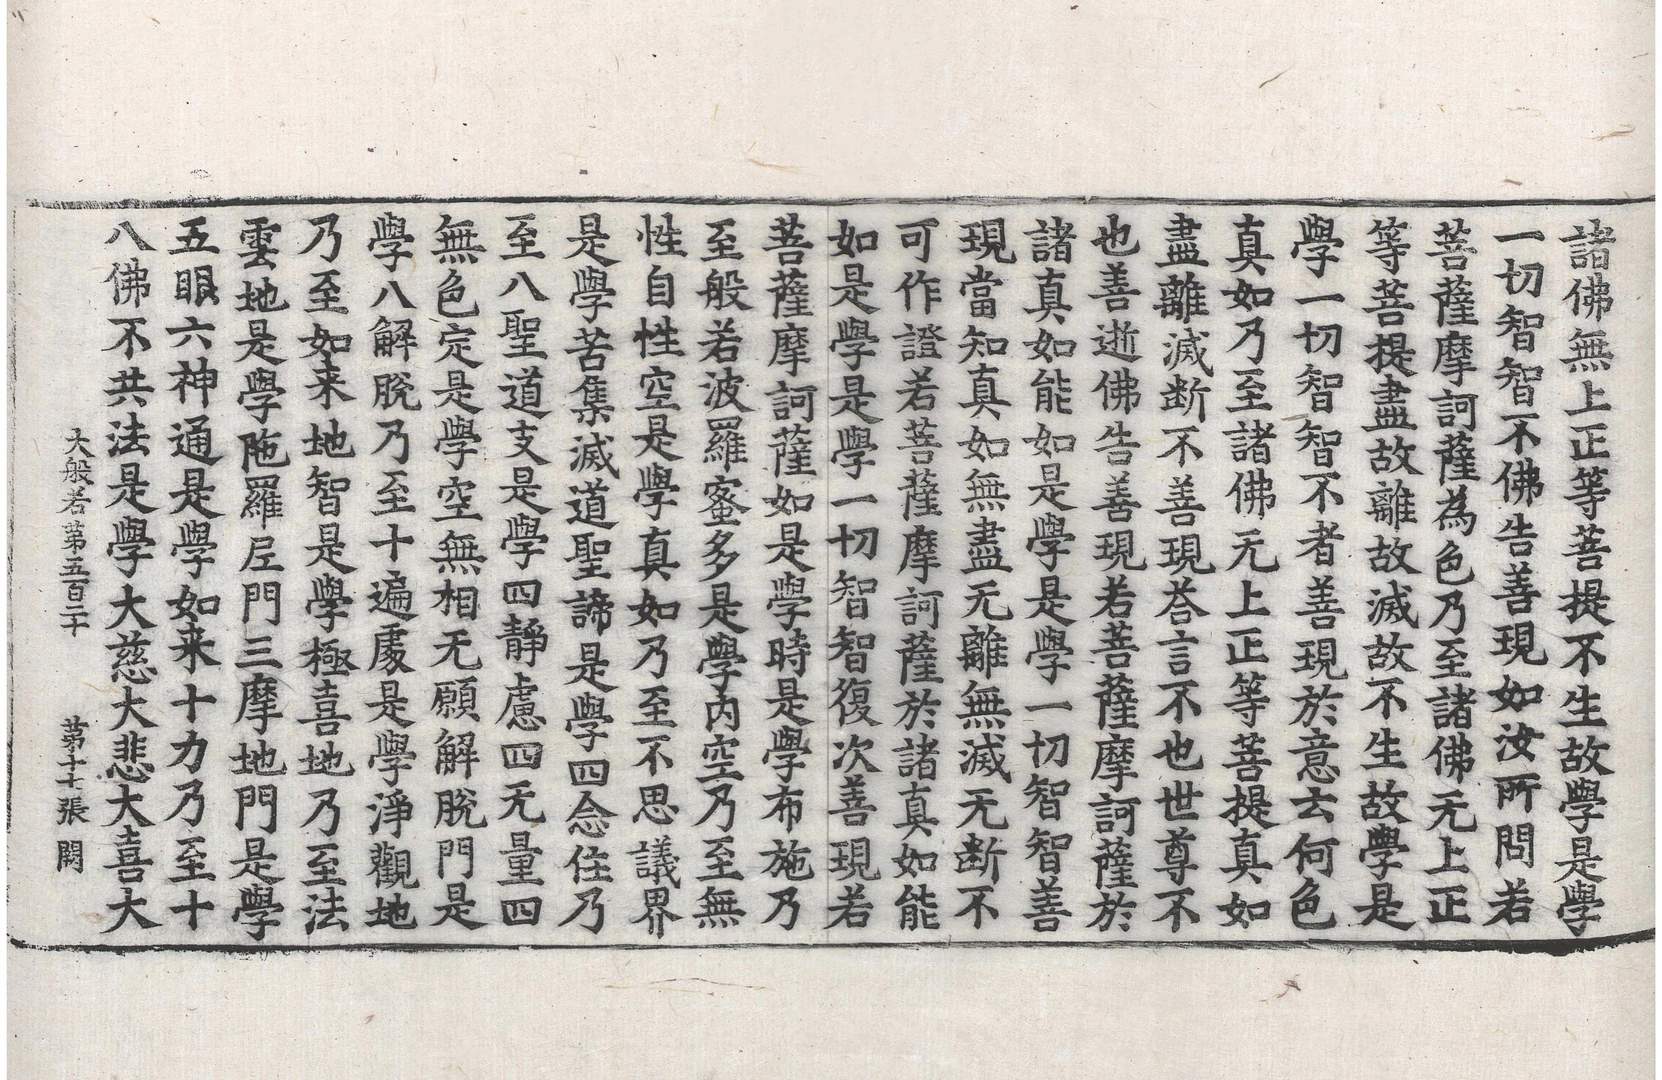 諸佛無上正等菩提不生故學是學
一切智智不佛告善現如汝所問若
菩薩摩訶薩為色乃至諸佛无上正
等菩提盡故離故滅故不生故學是
學一切智智不者善現於意云何色
真如乃至諸佛无上正等菩提真如
盡離滅断不不善現荅言不也世尊不
也善逝佛告善現若菩薩摩訶薩於
諸真如能如是學是學一切智智善
現當知真如無盡无離無滅无断不
可作證若菩薩摩訶薩於諸真如能
如是學是學一切智智復次善現若
菩薩摩訶薩如是學時是學布施乃
至般若波羅蜜多是學內空乃至無
性自性空是學真如乃至不思議界
是學苦集滅道聖諦是學四念住乃
至八聖道支是學四靜慮四无量四
無色定是學空無相无願解脫門是
學八解脫乃至十遍處是學淨觀地
乃至如来地智是學極喜地乃至法
雲地是學陁羅尼門三摩地門是學
五眼六神通是學如来十力乃至十
八佛不共法是學大慈大悲大喜大
大般若第五百二十 第十七張 闕